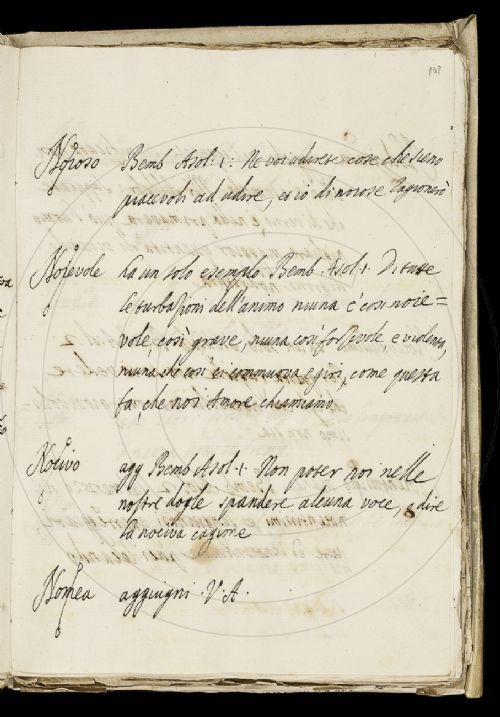 107
Noioso Bemb Asol: 1: Ne voi udirete cose che sieno
piacevoli ad udire, et io di noiose ragionerò
Noievole ha un solo esempio Bemb. Asol. 1. Di tutte
le turbazioni dell'animo niuna è così noie=
vole, così grave, niuna così forzevole e violenta,
niuna che così ci commuova e giri, come questa
fa, che noi Amore chiamiamo
Nocivo agg Bemb Asol. 1. Non poter noi nelle
nostre doglie spandere alcuna voce, e dire
la nociva cagione
Nomea aggiugni. V. A.